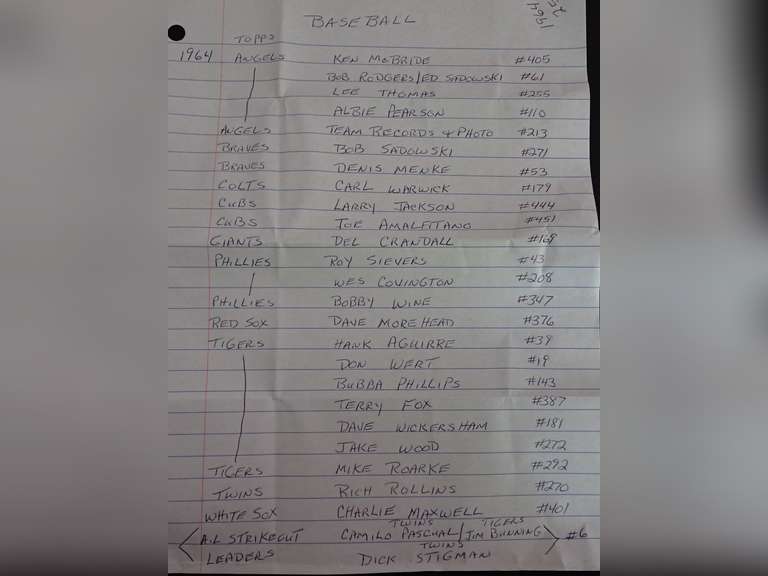 BASEBALL
1964 25
TOPPS
1964 ANGELS KEN McBRIDE #405
BOB RODGERS/ED SADOWSKI #61
LEE THOMAS #255
ALBIE PEARSON #110
ANGELS TEAM RECORDS & PHOTO #213
BRAVES BOB SADOWSKI #271
BRAVES DENIS MENKE #53
COLTS CARL WARWICK #179
CUBS LARRY JACKSON #444
CUBS JOE AMALFITANO #451
GIANTS DEL CRANDALL #169
PHILLIES ROY SIEVERS #43
WES COVINGTON #208
PHILLIES BOBBY WINE #347
RED SOX DAVE MOREHEAD #376
TIGERS HANK AGUIRRE #39
DON WERT #19
BUBBA PHILLIPS #143
TERRY FOX #387
DAVE WICKERSHAM #181
JAKE WOOD #272
TIGERS MIKE ROARKE #292
TWINS RICH ROLLINS #270
WHITE SOX CHARLIE MAXWELL #401
TWINS TIGERS
A.L STRIKEOUT CAMILO PASCHAL/JIM BUNNING #6
TWINS
LEADERS DICK STIGMAN